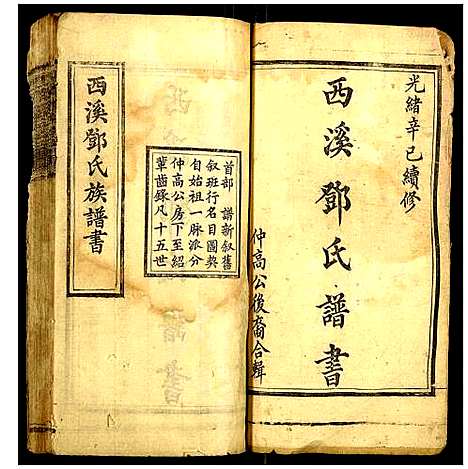 光緒辛巳續修
西溪鄧氏譜書
仲高公後裔合輯
首部　譜新叙舊
叙班行名目圖契
自始祖一脉派分
仲高公房下至紹
輩齒錄凡十五世
西溪鄧氏族譜書